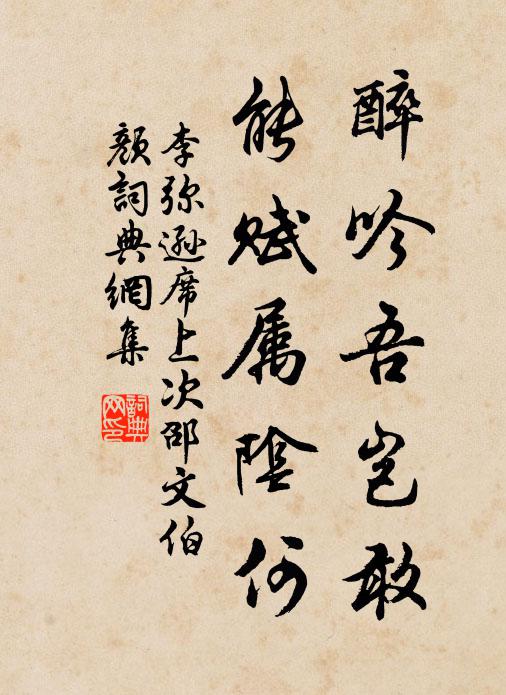 醉吟吾岂敢
能赋属陰何
李弥遜席上次邵文伯
顏詞典網集
詞典網印